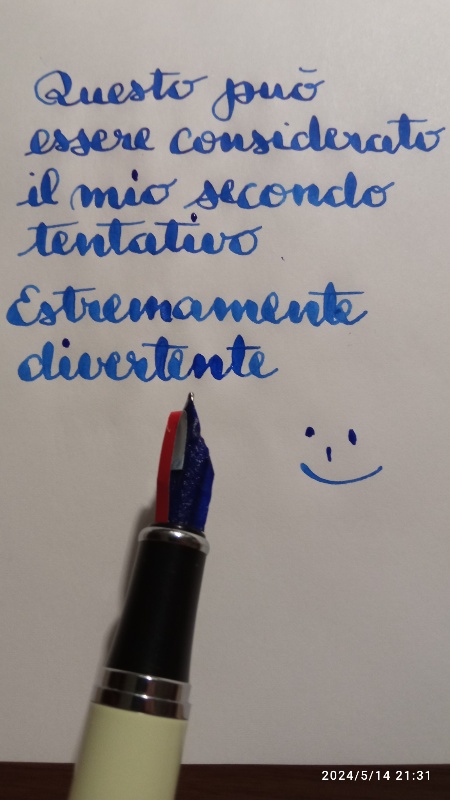 Questo può
essere considerato
il mio secondo
tentativo
Estremamente
divertente
2024/5/14 21:31